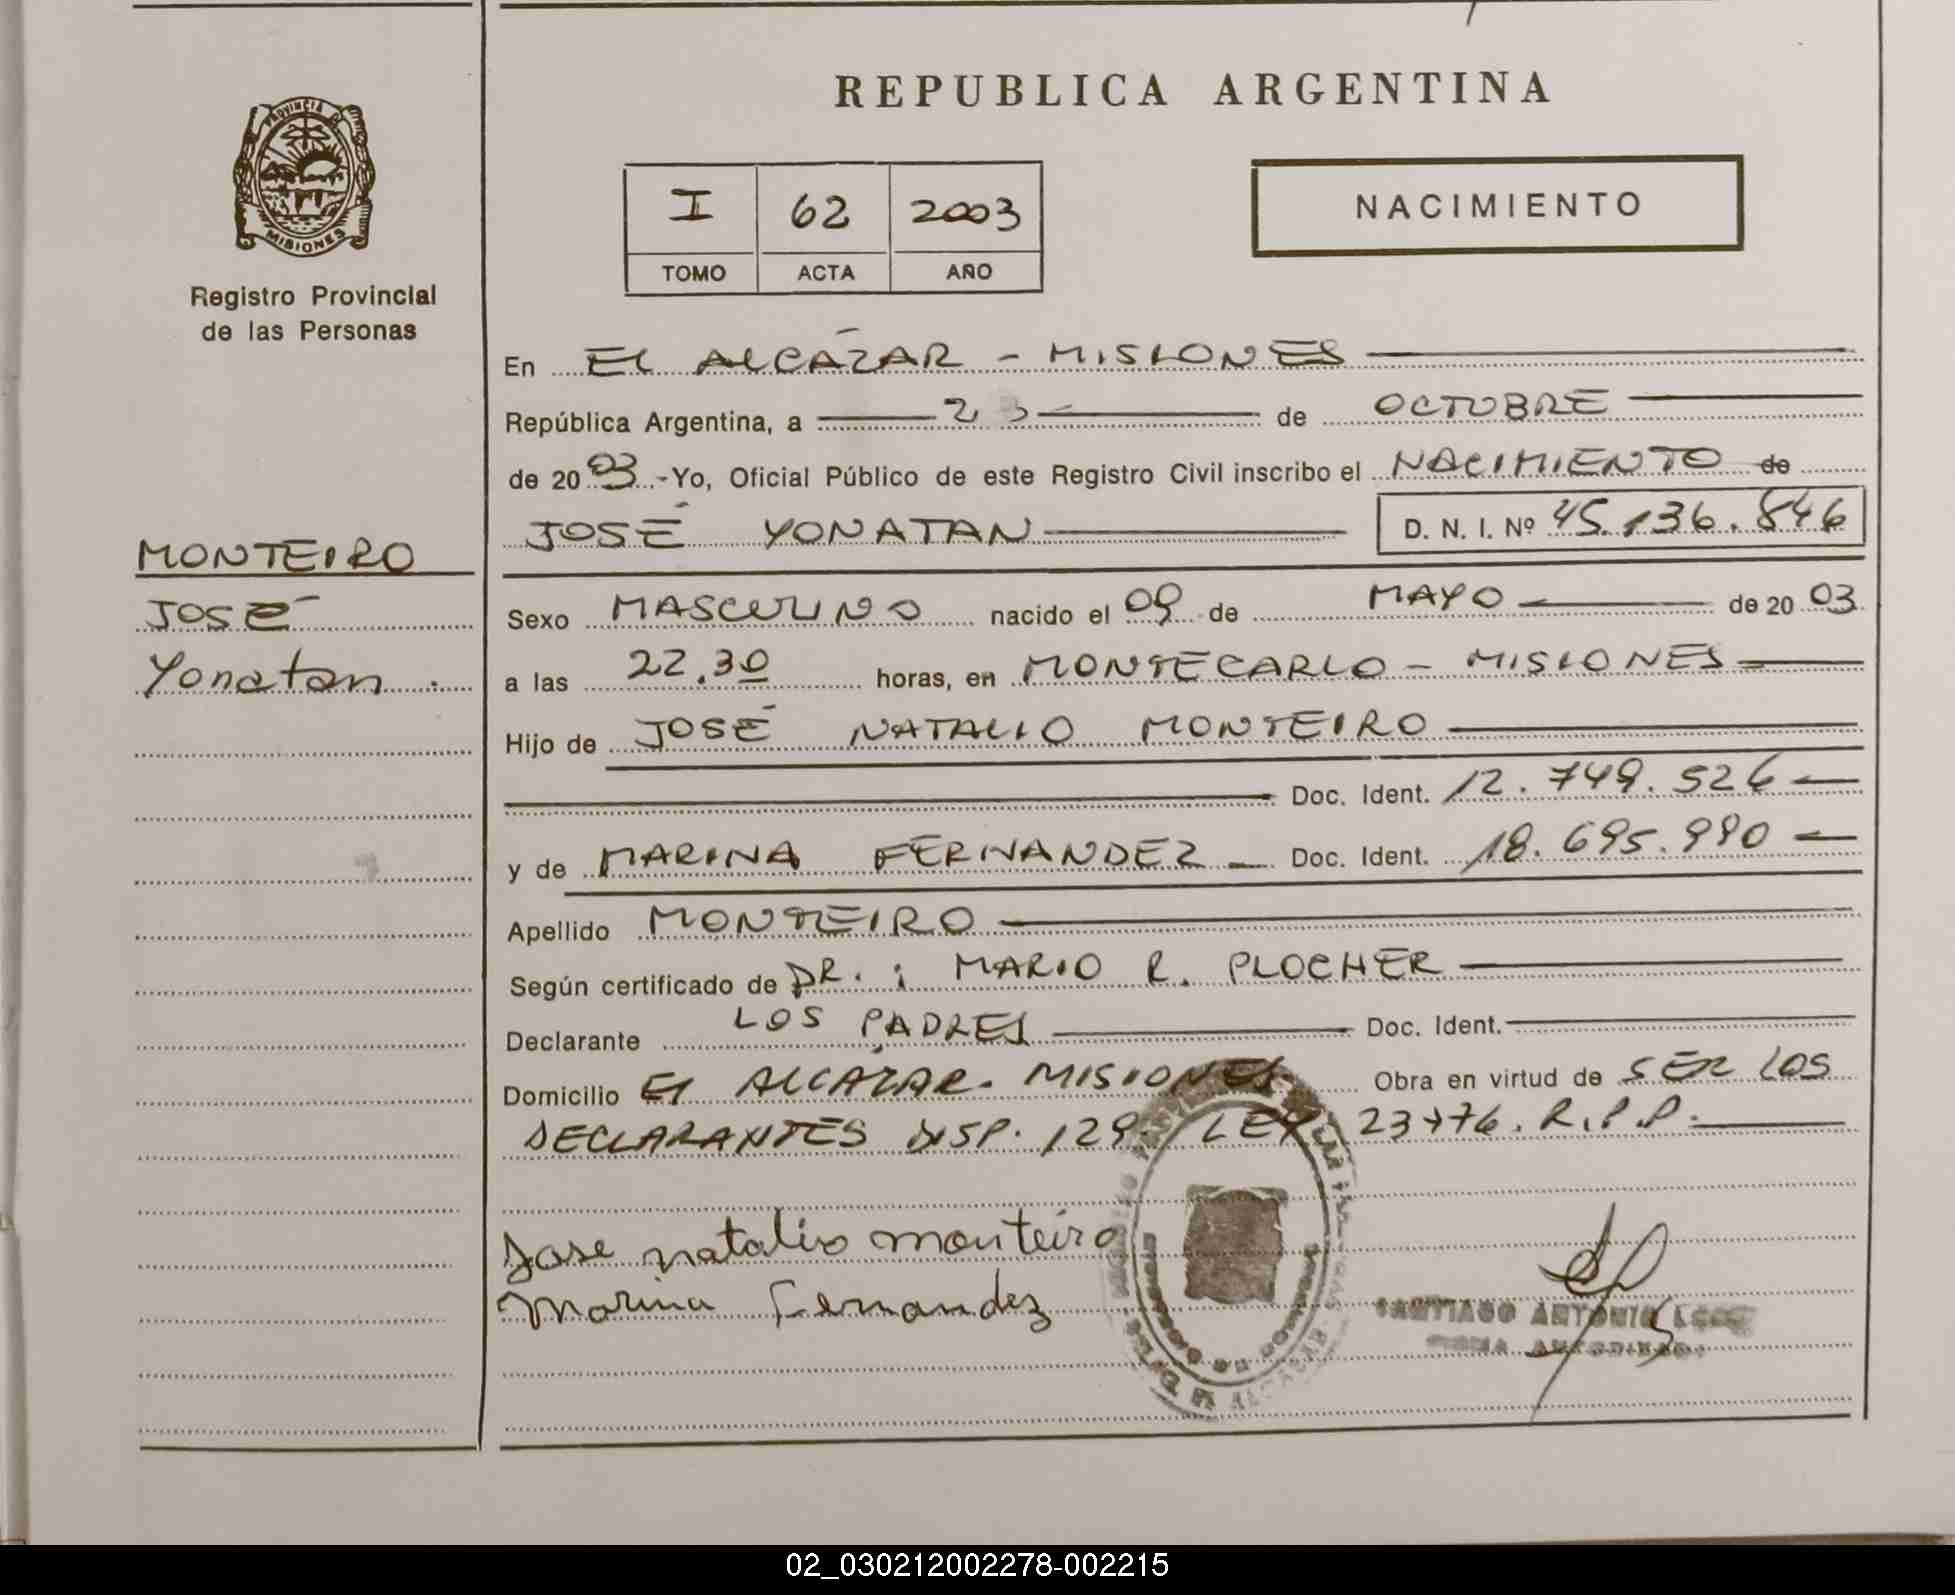 REPUBLICA ARGENTINA
PROVINCIA DE
MISIONES
Registro Provincial
de las Personas
I 62 2003
TOMO ACTA AÑO
NACIMIENTO
En EL ALCÁZAR - MISIONES
República Argentina, a 23 de OCTUBRE
de 2003 - Yo, Oficial Público de este Registro Civil inscribo el NACIMIENTO de
JOSÉ YONATAN D. N. I. Nº 45.136.846
MONTEIRO
JOSÉ
Yonatan.
Sexo MASCULINO nacido el 09 de MAYO de 2003
a las 22.30 horas, en MONTECARLO - MISIONES
Hijo de JOSÉ NATALIO MONTEIRO
Doc. Ident. 12.749.526
y de MARINA FERNANDEZ Doc. Ident. 18.695.990
Apellido MONTEIRO
Según certificado de DR.: MARIO R. PLOCHER
Declarante LOS PADRES Doc. Ident.
Domicilio El ALCAZAR. MISIONES Obra en virtud de SER LOS
DECLARANTES DISP. 129 LEY 23776. R.P.P.
Jose natalio monteiro
Marina Fernandez
SANTIAGO ANTONIO
FIRMA AUTORIZADA
02_030212002278-002215